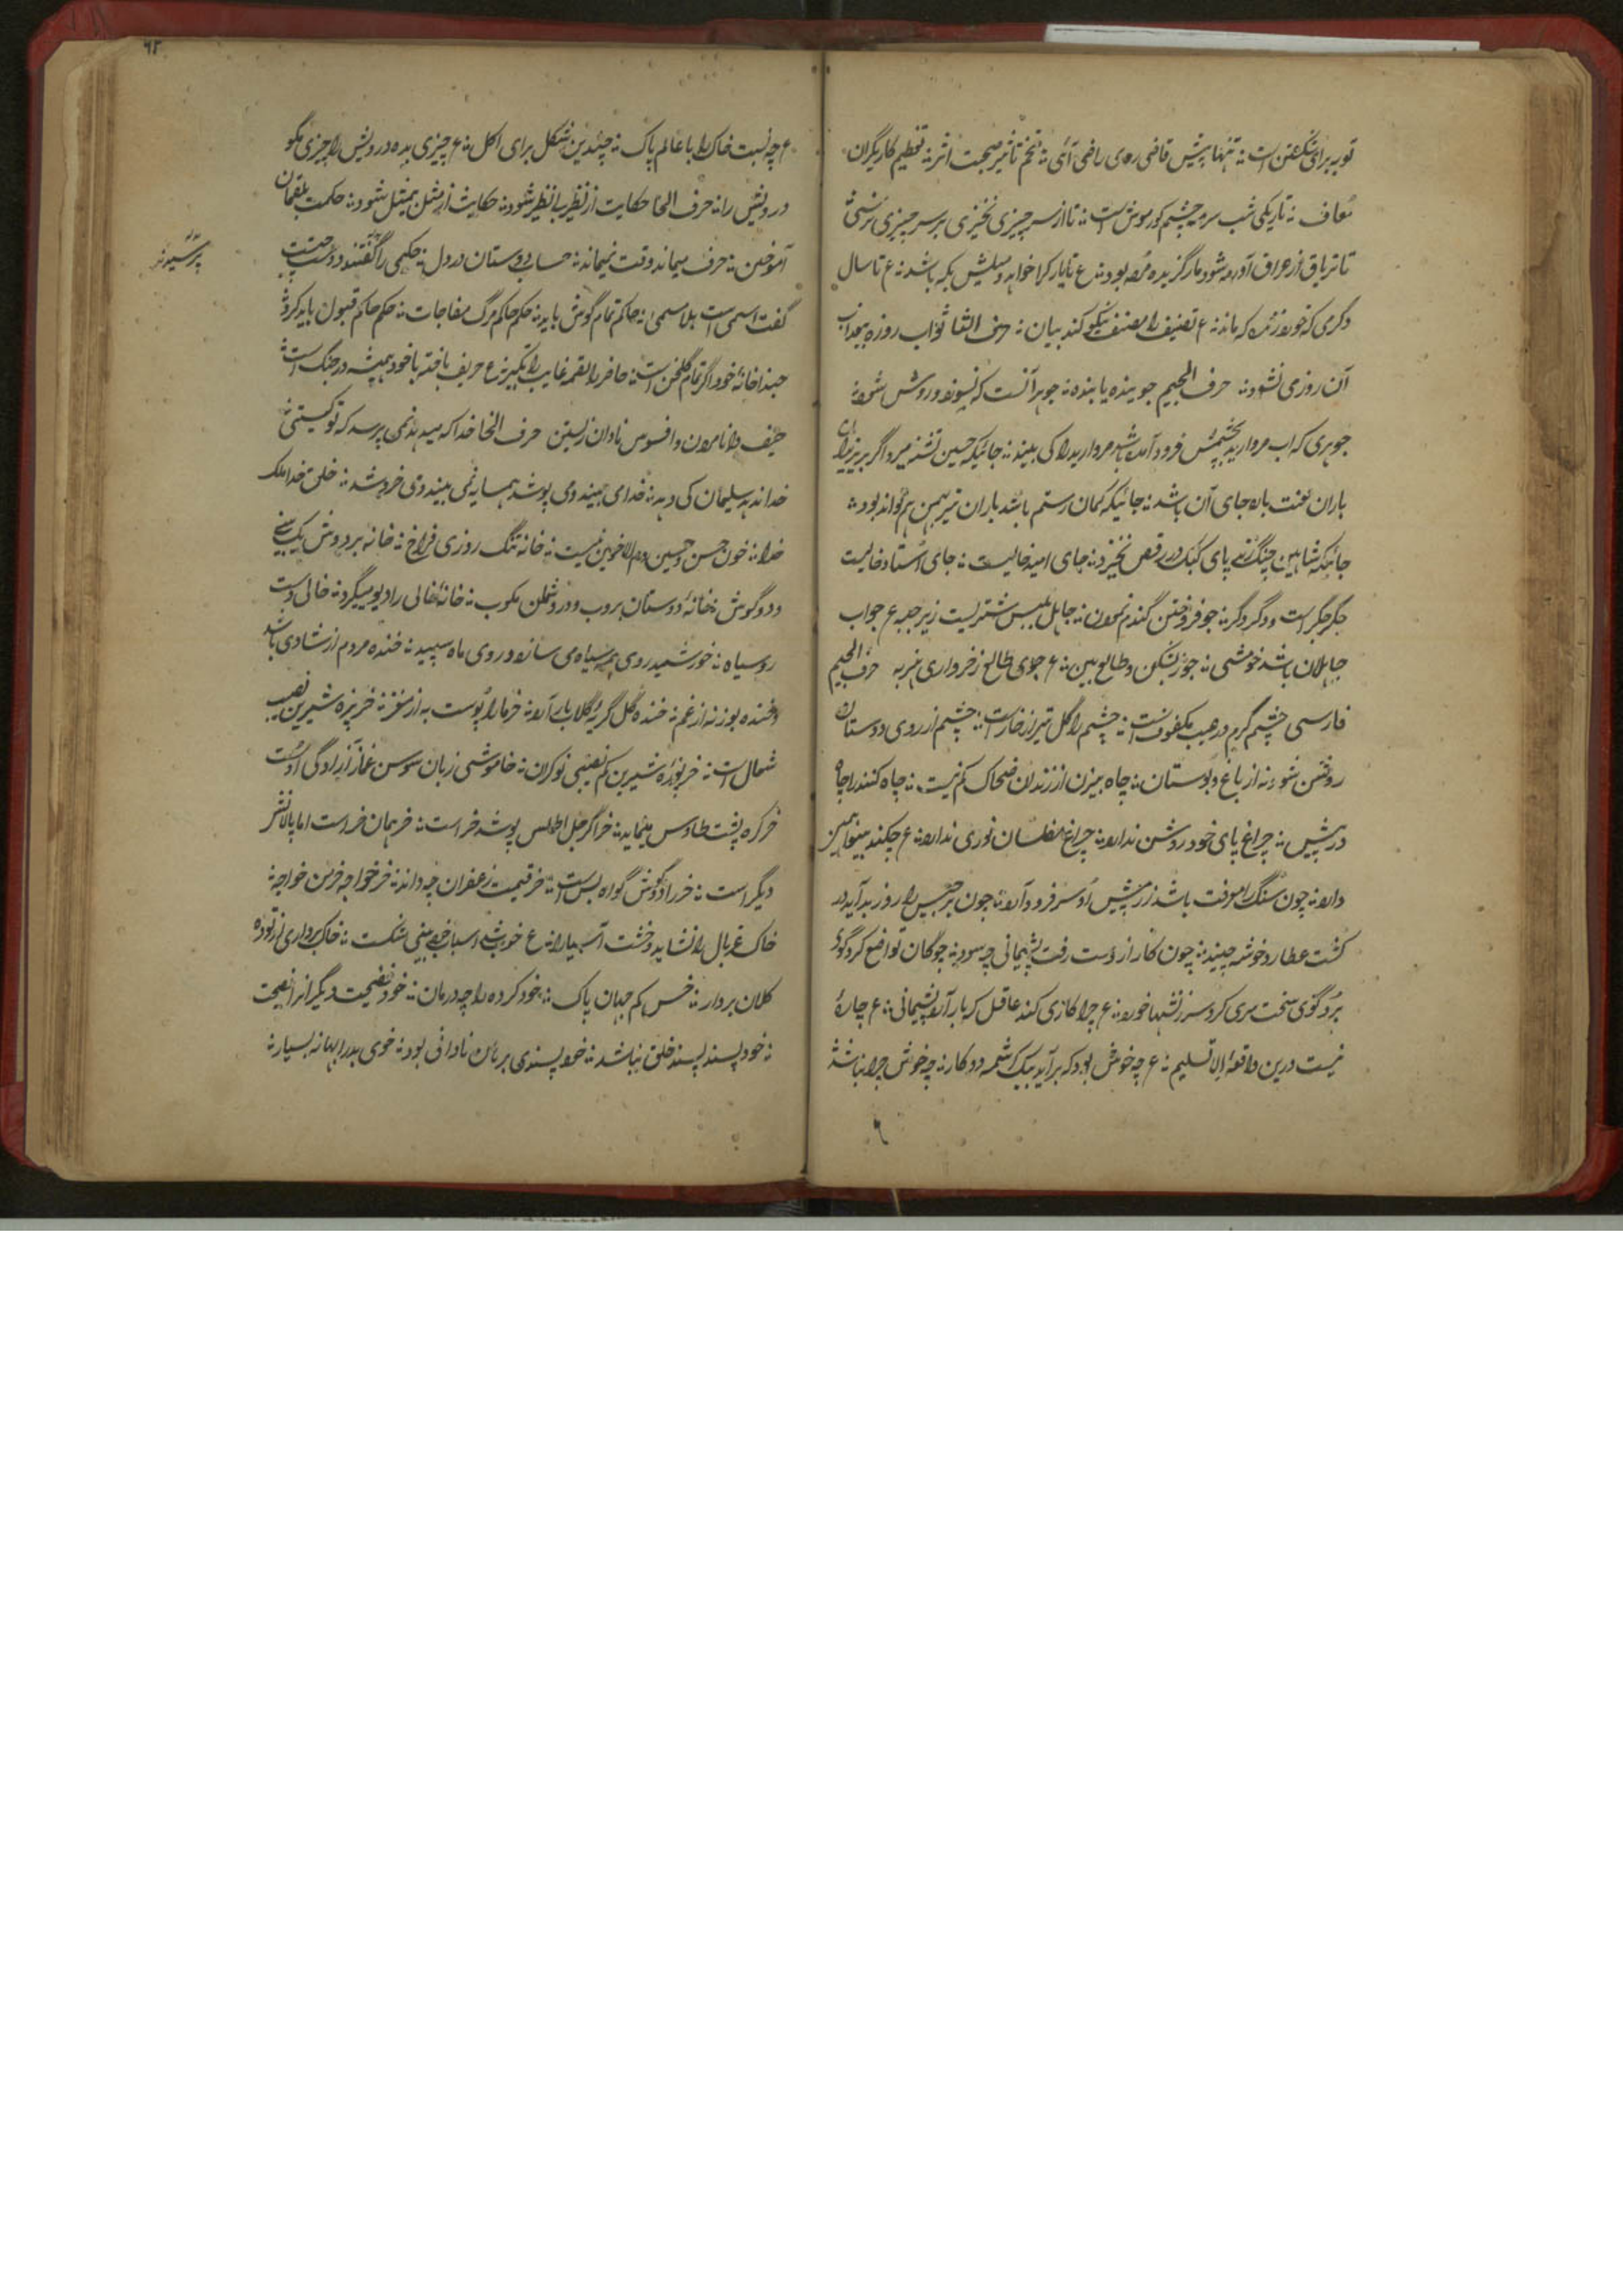 توبه برای شکستن است ؞ تنها پیش قاضی روی راضی آئی ؞ تخم تاثیر صحبت اثر ؞ تعظیم کاریگران
معاف ؞ تاریکی شب سرمه چشم کور موش است ؞ تا از سر چیزی نخیزی بر سر چیزی نرسی ؞
تا تریاق از عراق آورده شود مارگزیده مرده بود ؞ ع تا یار کرا خواهد و میلش بکه باشد ؞ ع تا سال
دگر می که خورد زنده که ماند ؞ ع تصنیف را مصنف نیکو کند بیان ؞ حرف الثا ثواب روزه بیعذاب
آن روزی نشود ؞ حرف الجیم جوینده یابنده ؞ جوهر آنست که بسوزد و روشن شود ؞
جوهری که آب مروارید بچشمش فرود آمده باشد مروارید را کی بیند ؞ جائیکه حسین تشنه میرد اگر بر یزیدان
باران لعنت بارد جای آن باشد ؞ جائیکه کمان رستم باشد باران تیر بهمن هم تواند بود ؞
جائیکه شاهین چنگ زند پای کبک در رقص نخیزد ؞ جای امید خالیست ؞ جای استاد خالیست
جگر جگر است و دگر دگر ؞ جو فروختن گندم نمودن ؞ جاهل بلبس شتریست زیر جبه ع جواب
جاهلان باشد خموشی ؞ جوز بشکن و طالع ببین ؞ ع جوی طالع ز خرواری هنر به حرف الجیم
فارسی چشم کرم در عیب مکفوفست ؞ چشم را گل تیز از خار است ؞ چشم از روی دوستان
روشن شود نه از باغ و بوستان ؞ چاه بیژن از زندان ضحاک کم نیست ؞ چاه کننده را چاه
در پیش ؞ چراغ پای خود روشن ندارد ؞ چراغ مفلسان نوری ندارد ؞ ع چکند بینوا همین
دارد ؞ چون سنگ را معرفت باشد زر پیش او سر فرود آرد ؞ چون برجیس را روز بد آید در
کشت عطارد خوشه چیند ؞ چون کار از دست رفت پشیمانی چه سود ؞ چوگان تواضع کرد گوی
برد گوی سخت سری کرد سرزنشها خورد ؞ ع چرا کاری کند عاقل که بار آرد پشیمانی ؞ ع چارهٔ
نیست درین واقعه الا تسلیم ؞ ع چه خوش بود که برآید بیک کرشمه دو کار ؞ چه خوش چرا نباشد
۶۲
ع چه نسبت خاک را با عالم پاک ؞ چندین شکل برای اکل ؞ ع چیزی بده درویش را چیزی مگو
درویش را ؞ حرف الحا حکایت از نظیر بانظیر شود ؞ حکایت از مثل بمثل شود ؞ حکمت بلقمان
آموختن ؞ حرف میماند وقت نمیماند ؞ حساب دوستان در دل ؞ حکیمی را گفتند دوست چیست
پرسیدند
گفت اسمی است بلا مسمی ؞ حاکم تمام گوش باید ؞ حکم حاکم مرگ مفاجات ؞ حکم حاکم قبول باید کرد ؞
حبذا خانهٔ خود اگر تمام گلخن است ؞ حاضر را لقمه غایب را تکبیر ؞ ع حریف باخته با خود همیشه در جنگ است ؞
حیف دانا مردن و افسوس نادان زیستن حرف الخا خدا که میدهد نمی پرسد که تو کیستی ؞
خدا ندهد سلیمان کی دهد ؞ خدا می بیند و می پوشد همسایه نمی بیند و می خروشد ؞ خلق خدا ملک
خدا ؞ خون حسن و حسین دم الاخوین نیست ؞ خانه تنگ روزی فراخ ؞ خانه بر دوش یک بینی
و دو گوش ؞ خانهٔ دوستان بروب و در دشمن مکوب ؞ خانهٔ خالی را دیو میگیرد ؞ خالی دست
روسیاه ؞ خورشید روی مه سیاه می سازد و روی ماه سپید ؞ خنده مردم از شادی باشد
و خنده بوزنه از غم ؞ خنده گل گریهٔ گلاب بار آرد ؞ خرما را پوست به از مغز ؞ خربزه شیرین نصیب
شغال است ؞ خربوزهٔ شیرین کم نصیبی نوکران ؞ خاموشی زبان سوسن غماز آزادگی اوست
خر کره پشت طاوس مینماید ؞ خر اگر جل اطلس پوشد خر است ؞ خر همان خر است اما پالانش
دیگر است ؞ خر را دو گوش گواه بس است ؞ خر قیمت زعفران چه داند ؞ خر خواجه خرمن خواجه ؞
خاک غربال را نشاید و خشت آسیا را ؞ ع خورشید اسباب بینی شکست ؞ خاک برداری از توده
کلان بردار ؞ خس کم جهان پاک ؞ خود کرده را چه درمان ؞ خود فضیحت دیگرانرا نصیحت
؞ خود پسند پسند خلق نباشد ؞ خود پسندی برهان نادانی بود ؞ خوی بد را بهانه بسیار ؞